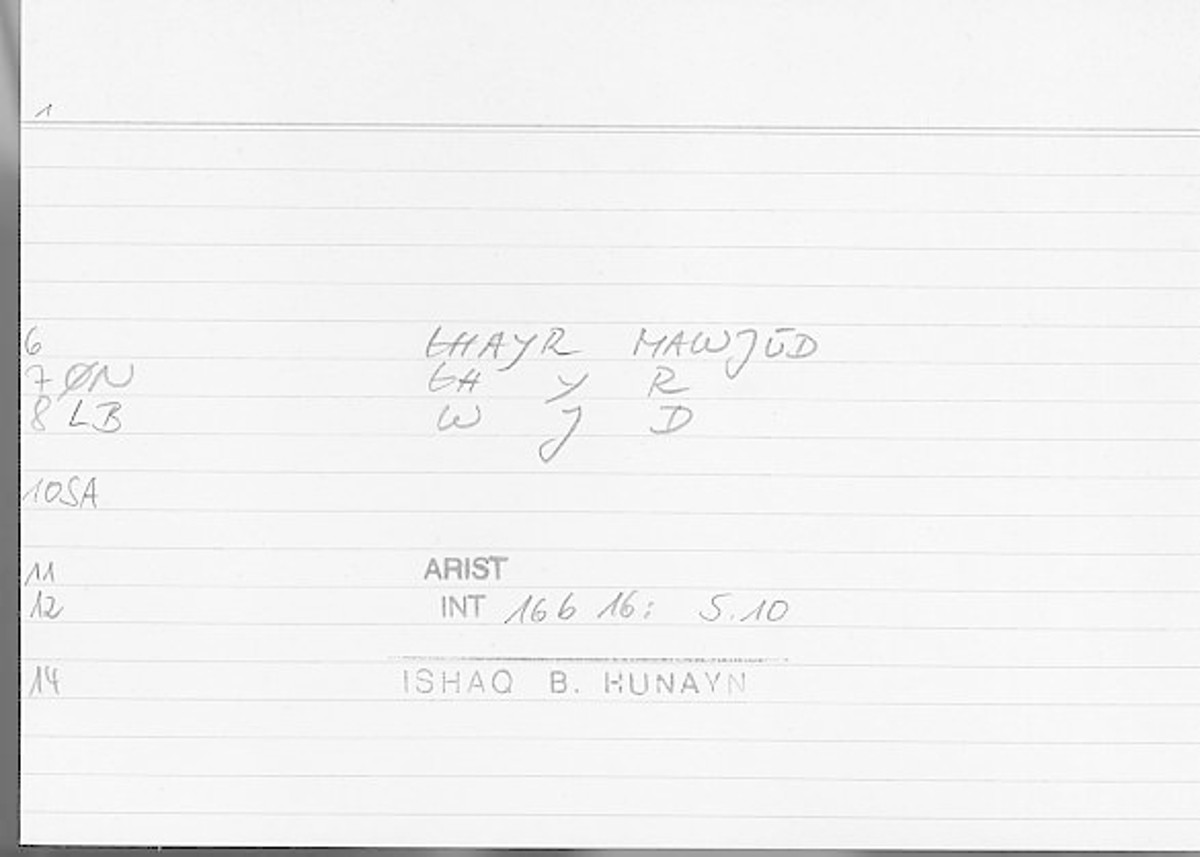 1
6 GHAYR MAWJŪD
7 ØN GH Y R
8 LB W J D
10 SA
11 ARIST
12 INT 16 b 16: 5.10
14 ISHAQ B. HUNAYN